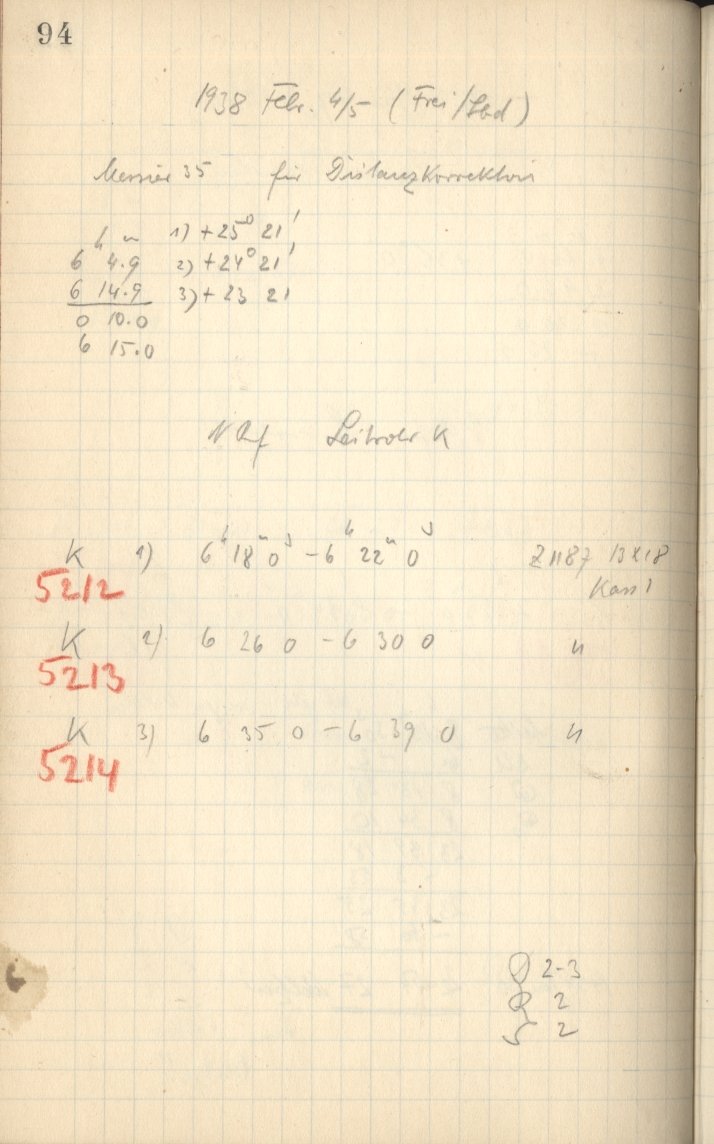 94
1938 Febr. 4/5 (Frei/Sbd)
Messier 35 für Distanzkorrektion
h m 1) +25° 21'
6 4.9 2) +24° 21'
6 14.9 3) + 23 21
0 10.0
6 15.0
Leitrohr K
K 1) 6h 18m 0s - 6h 22m 0s Z 1187 13x18
5212 Kass 1
K 2) 6 26 0 - 6 30 0 "
5213
K 3) 6 35 0 - 6 39 0 "
5214
D 2-3
R 2
S 2